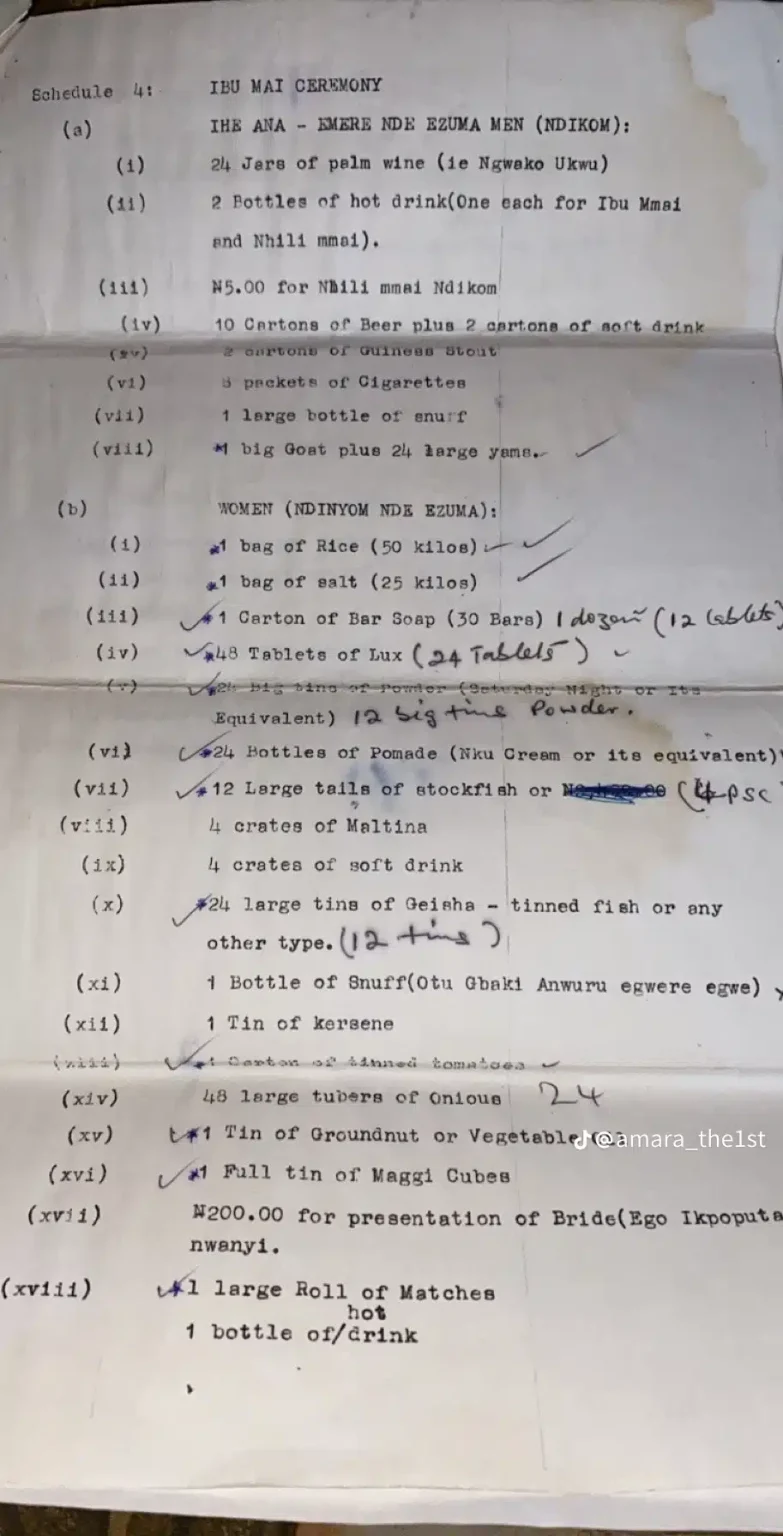 Schedule 4: IBU MAI CEREMONY
(a) IHE ANA - EMERE NDE EZUMA MEN (NDIKOM):
(i) 24 Jars of palm wine (ie Ngwako Ukwu)
(ii) 2 Bottles of hot drink(One each for Ibu Mmai
and Nhili mmai).
(iii) ₦5.00 for Nhili mmai Ndikom
(iv) 10 Cartons of Beer plus 2 cartons of soft drink
2 cartons of Guiness Stout
(vi) 3 packets of Cigarettes
(vii) 1 large bottle of snuff
(viii) *1 big Goat plus 24 large yams.
(b) WOMEN (NDINYOM NDE EZUMA):
(i) *1 bag of Rice (50 kilos)
(ii) *1 bag of salt (25 kilos)
(iii) *1 Carton of Bar Soap (30 Bars) 1 dozen (12 tablets)
(iv) *48 Tablets of Lux (24 Tablets)
(v) *24 big tins of Powder (Saturday Night or Its
Equivalent) 12 big tins Powder.
(vi) *24 Bottles of Pomade (Nku Cream or its equivalent)
(vii) *12 Large tails of stockfish or (4 psc
(viii) 4 crates of Maltina
(ix) 4 crates of soft drink
(x) *24 large tins of Geisha - tinned fish or any
other type. (12 tins)
(xi) 1 Bottle of Snuff(Otu Gbaki Anwuru egwere egwe)
(xii) 1 Tin of kersene
(xiii) *1 Carton of tinned tomatoes
(xiv) 48 large tubers of Onious 24
(xv) *1 Tin of Groundnut or Vegetable @amara_the1st
(xvi) *1 Full tin of Maggi Cubes
(xvii) ₦200.00 for presentation of Bride(Ego Ikpoputa
nwanyi.
(xviii) *1 large Roll of Matches
hot
1 bottle of/drink